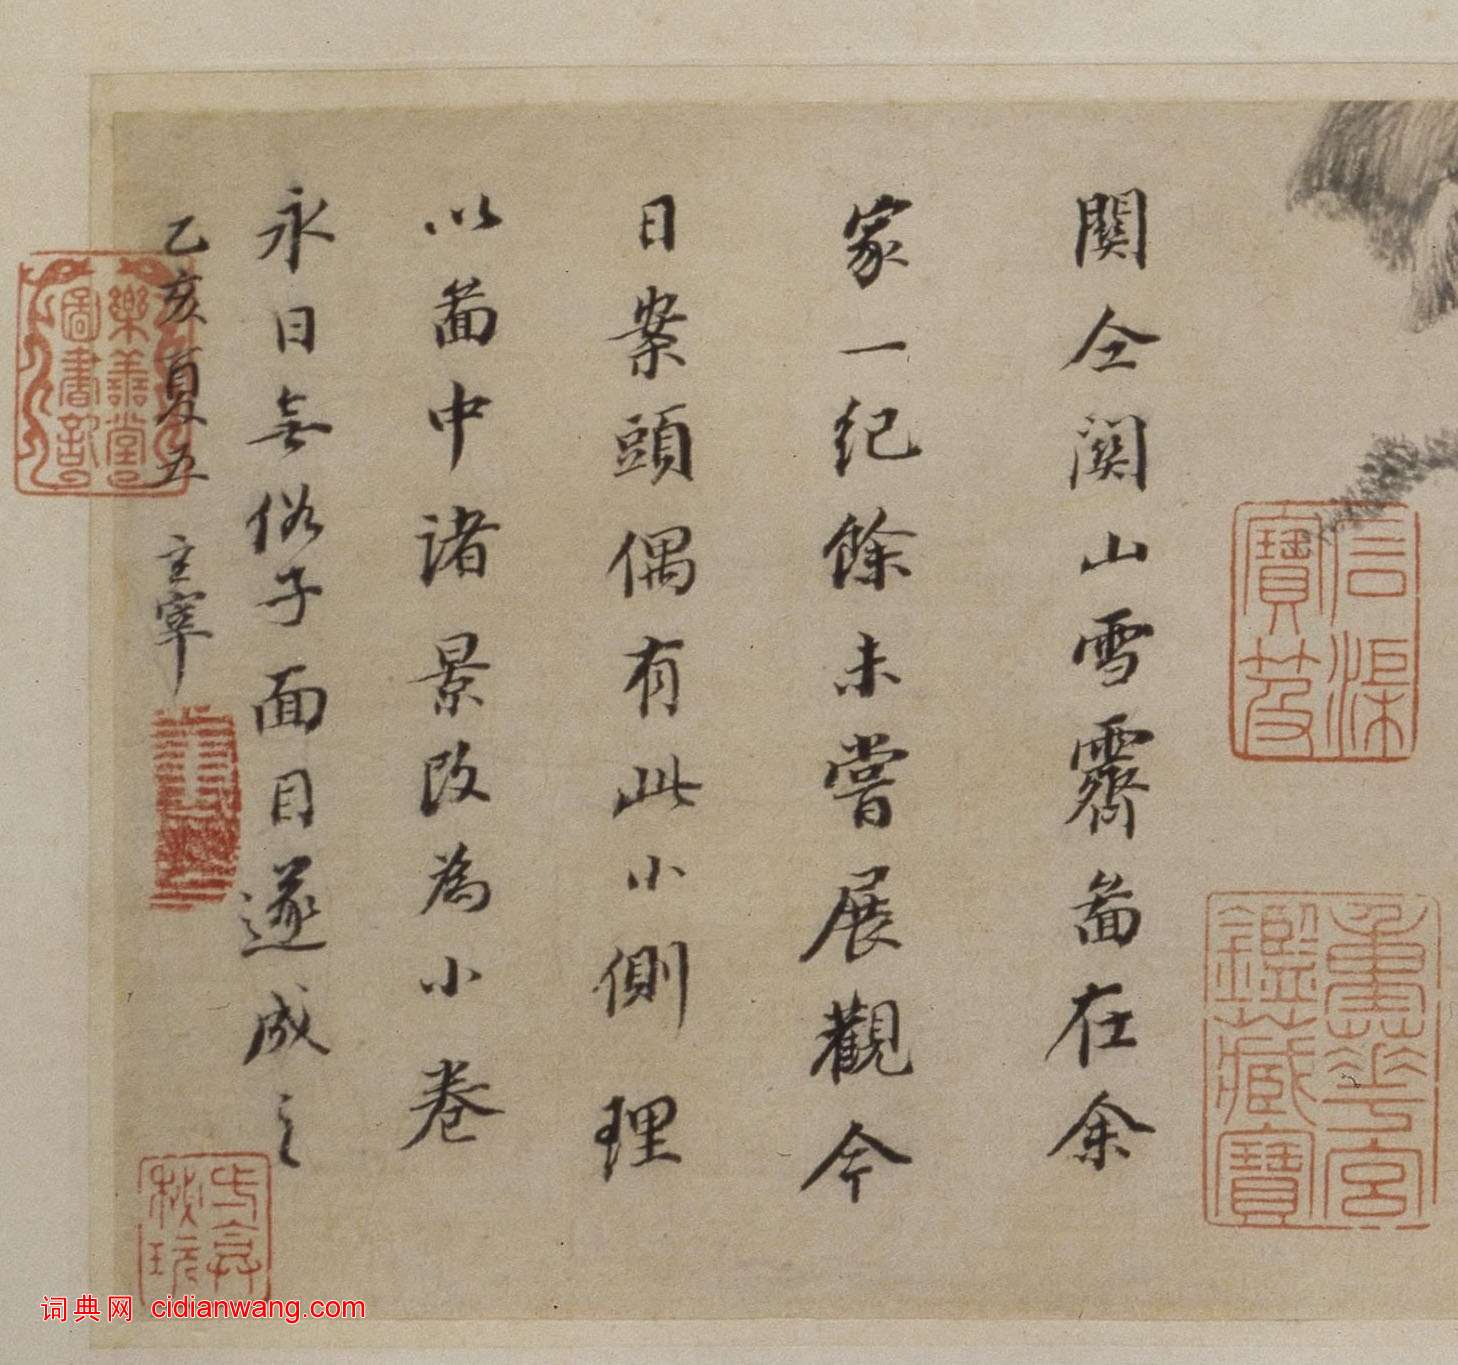 關仝關山雪霽啚在余
家一纪餘未嘗展觀今
日案頭偶有此小側理
以啚中諸景改為小卷
永日無俗子面目遂成之
乙亥夏五 玄宰
信
寶笈
重華宮
鑑藏寶
樂善堂
圖書記
词典网 cidianwang.com